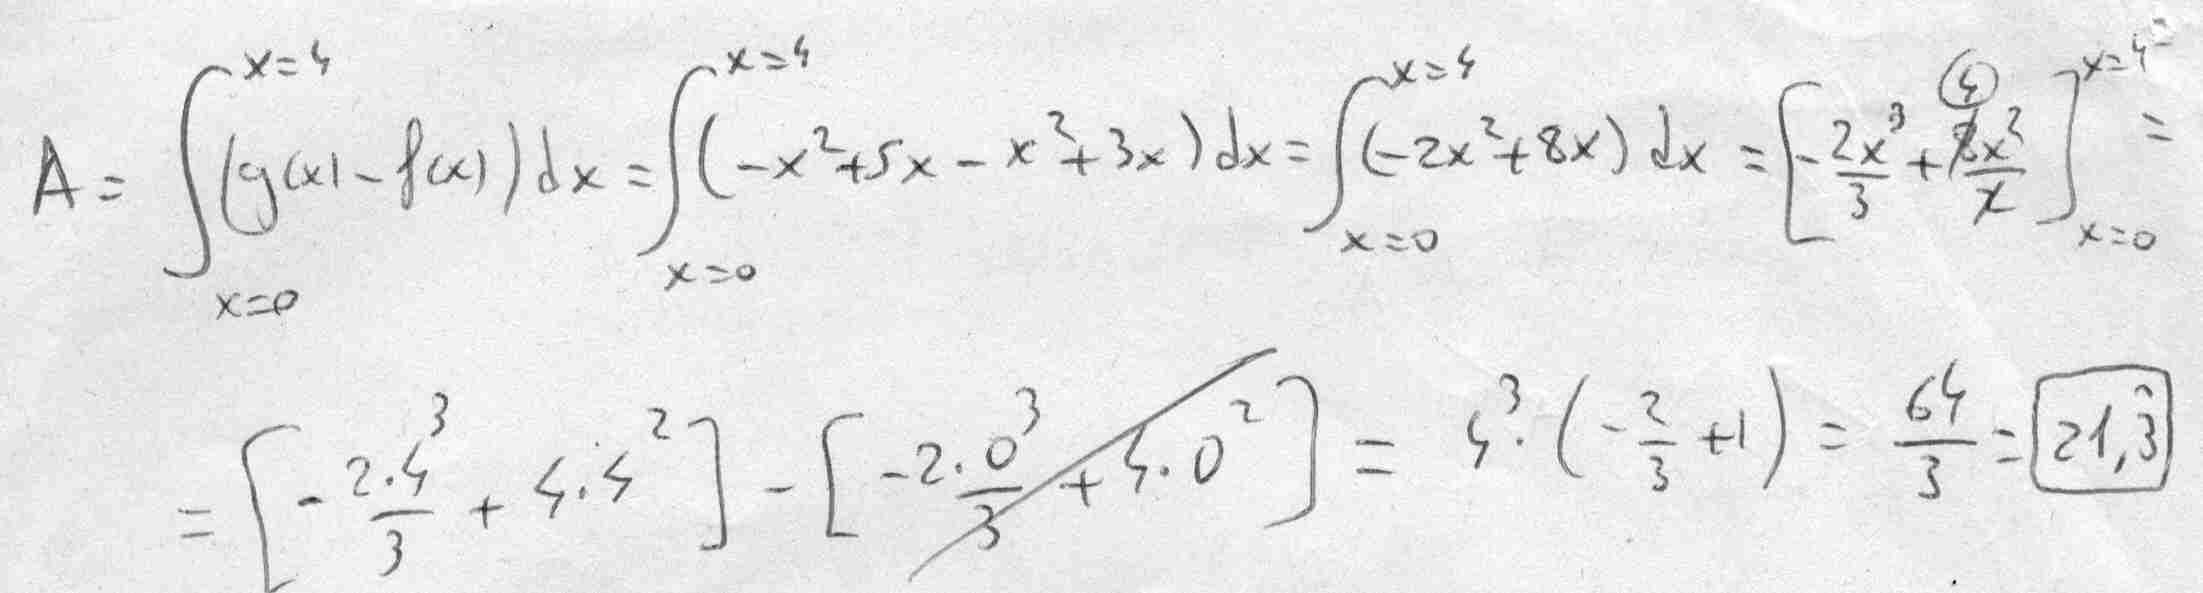 A = ∫_{x=0}^{x=4} (g(x) - f(x)) dx = ∫_{x=0}^{x=4} (-x²+5x - x²+3x) dx = ∫_{x=0}^{x=4} (-2x²+8x) dx = [-2x³/3 + 8x²/2 (4)]_{x=0}^{x=4} =
= [-2·4³/3 + 4·4²] - [-2·0³/3 + 4·0²] = 4³·(-2/3 +1) = 64/3 = 21,3̂